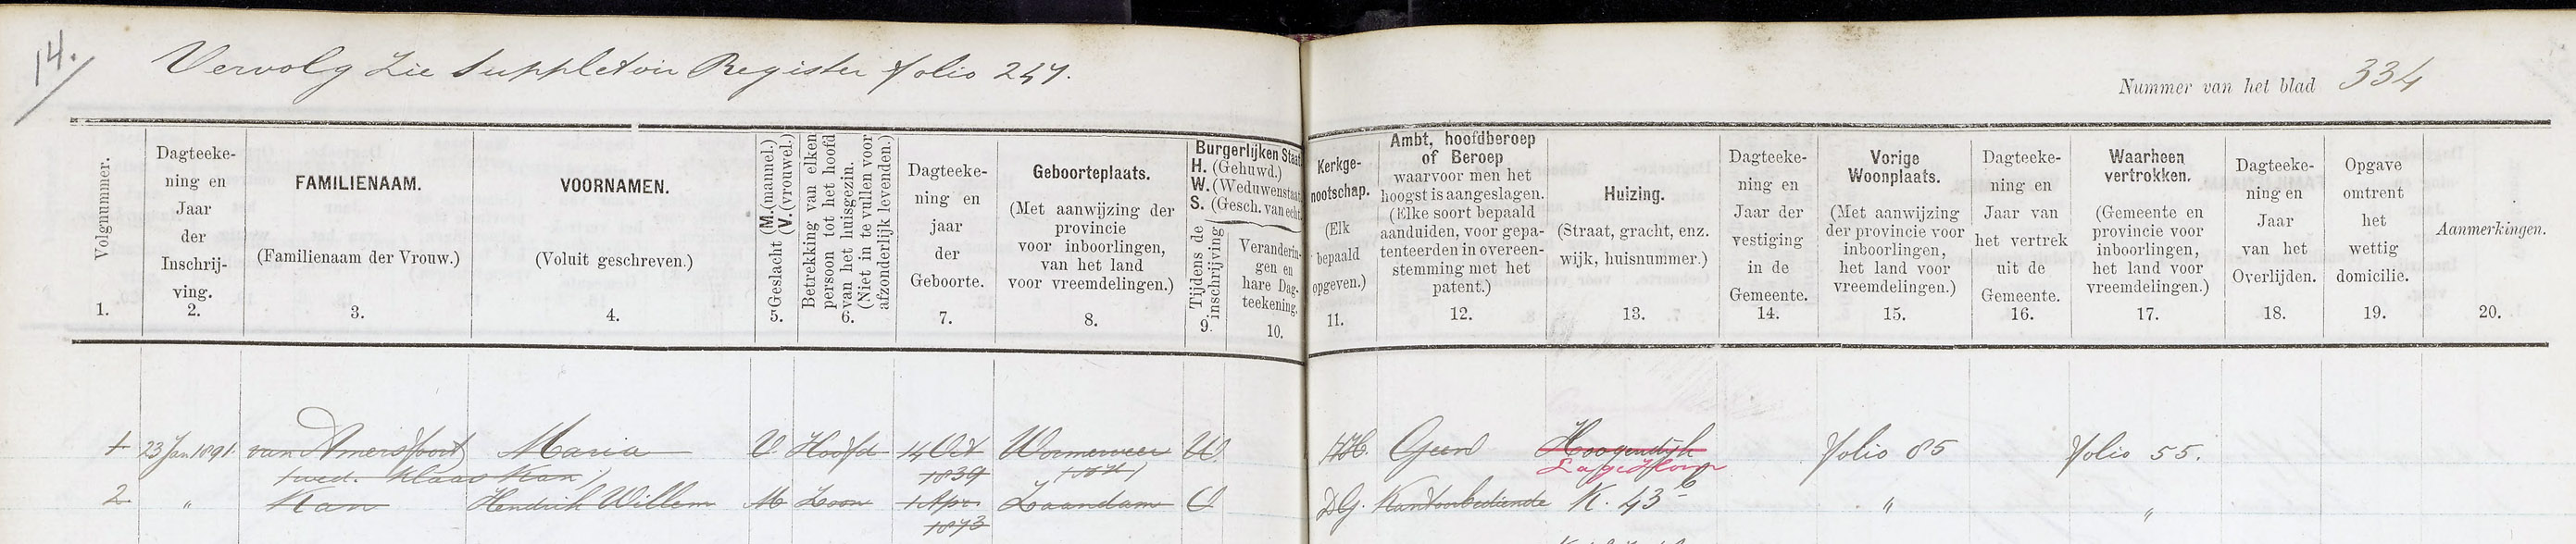 14.
Vervolg Zie Suppletoir Register folio 247.
Nummer van het blad 334
Volgnummer.
1.
Dagteeke-
ning en
Jaar
der
Inschrij-
ving.
2.
FAMILIENAAM.
(Familienaam der Vrouw.)
3.
VOORNAMEN.
(Voluit geschreven.)
4.
Geslacht (M.(mannel.)
V.(vrouwel.)
5.
Betrekking van elken
persoon tot het hoofd
van het huisgezin.
(Niet in te vullen voor
afzonderlijk levenden.)
6.
Dagteeke-
ning en
jaar
der
Geboorte.
7.
Geboorteplaats.
(Met aanwijzing der
provincie
voor inboorlingen,
van het land
voor vreemdelingen.)
8.
Burgerlijken Staat
H. (Gehuwd.)
W. (Weduwenstaat
S. (Gesch. van echt
Tijdens de
inschrijving
9.
Veranderin-
gen en
hare Dag-
teekening.
10.
Kerkge-
nootschap.
(Elk
bepaald
opgeven.)
11.
Ambt, hoofdberoep
of Beroep
waarvoor men het
hoogst is aangeslagen.
(Elke soort bepaald
aanduiden, voor gepa-
tenteerden in overeen-
stemming met het
patent.)
12.
Huizing.
(Straat, gracht, enz.
wijk, huisnummer.)
13.
Dagteeke-
ning en
Jaar der
vestiging
in de
Gemeente.
14.
Vorige
Woonplaats.
(Met aanwijzing
der provincie voor
inboorlingen,
het land voor
vreemdelingen.)
15.
Dagteeke-
ning en
Jaar van
het vertrek
uit de
Gemeente.
16.
Waarheen
vertrokken.
(Gemeente en
provincie voor
inboorlingen,
het land voor
vreemdelingen.)
17.
Dagteeke-
ning en
Jaar
van het
Overlijden.
18.
Opgave
omtrent
het
wettig
domicilie.
19.
Aanmerkingen.
20.
1 23 Jan 1891. van Amersfoort Maria V. Hoofd 14 Oct Wormerveer W. NH. Geen Hoogendijk folio 85 folio 55.
(wed. Klaas Kan) 1839 Lagedijk
2 " Kan Hendrik Willem M Zoon 1 Apr. Zaandam O DG. Kantoorbediende K. 43 b " "
1873